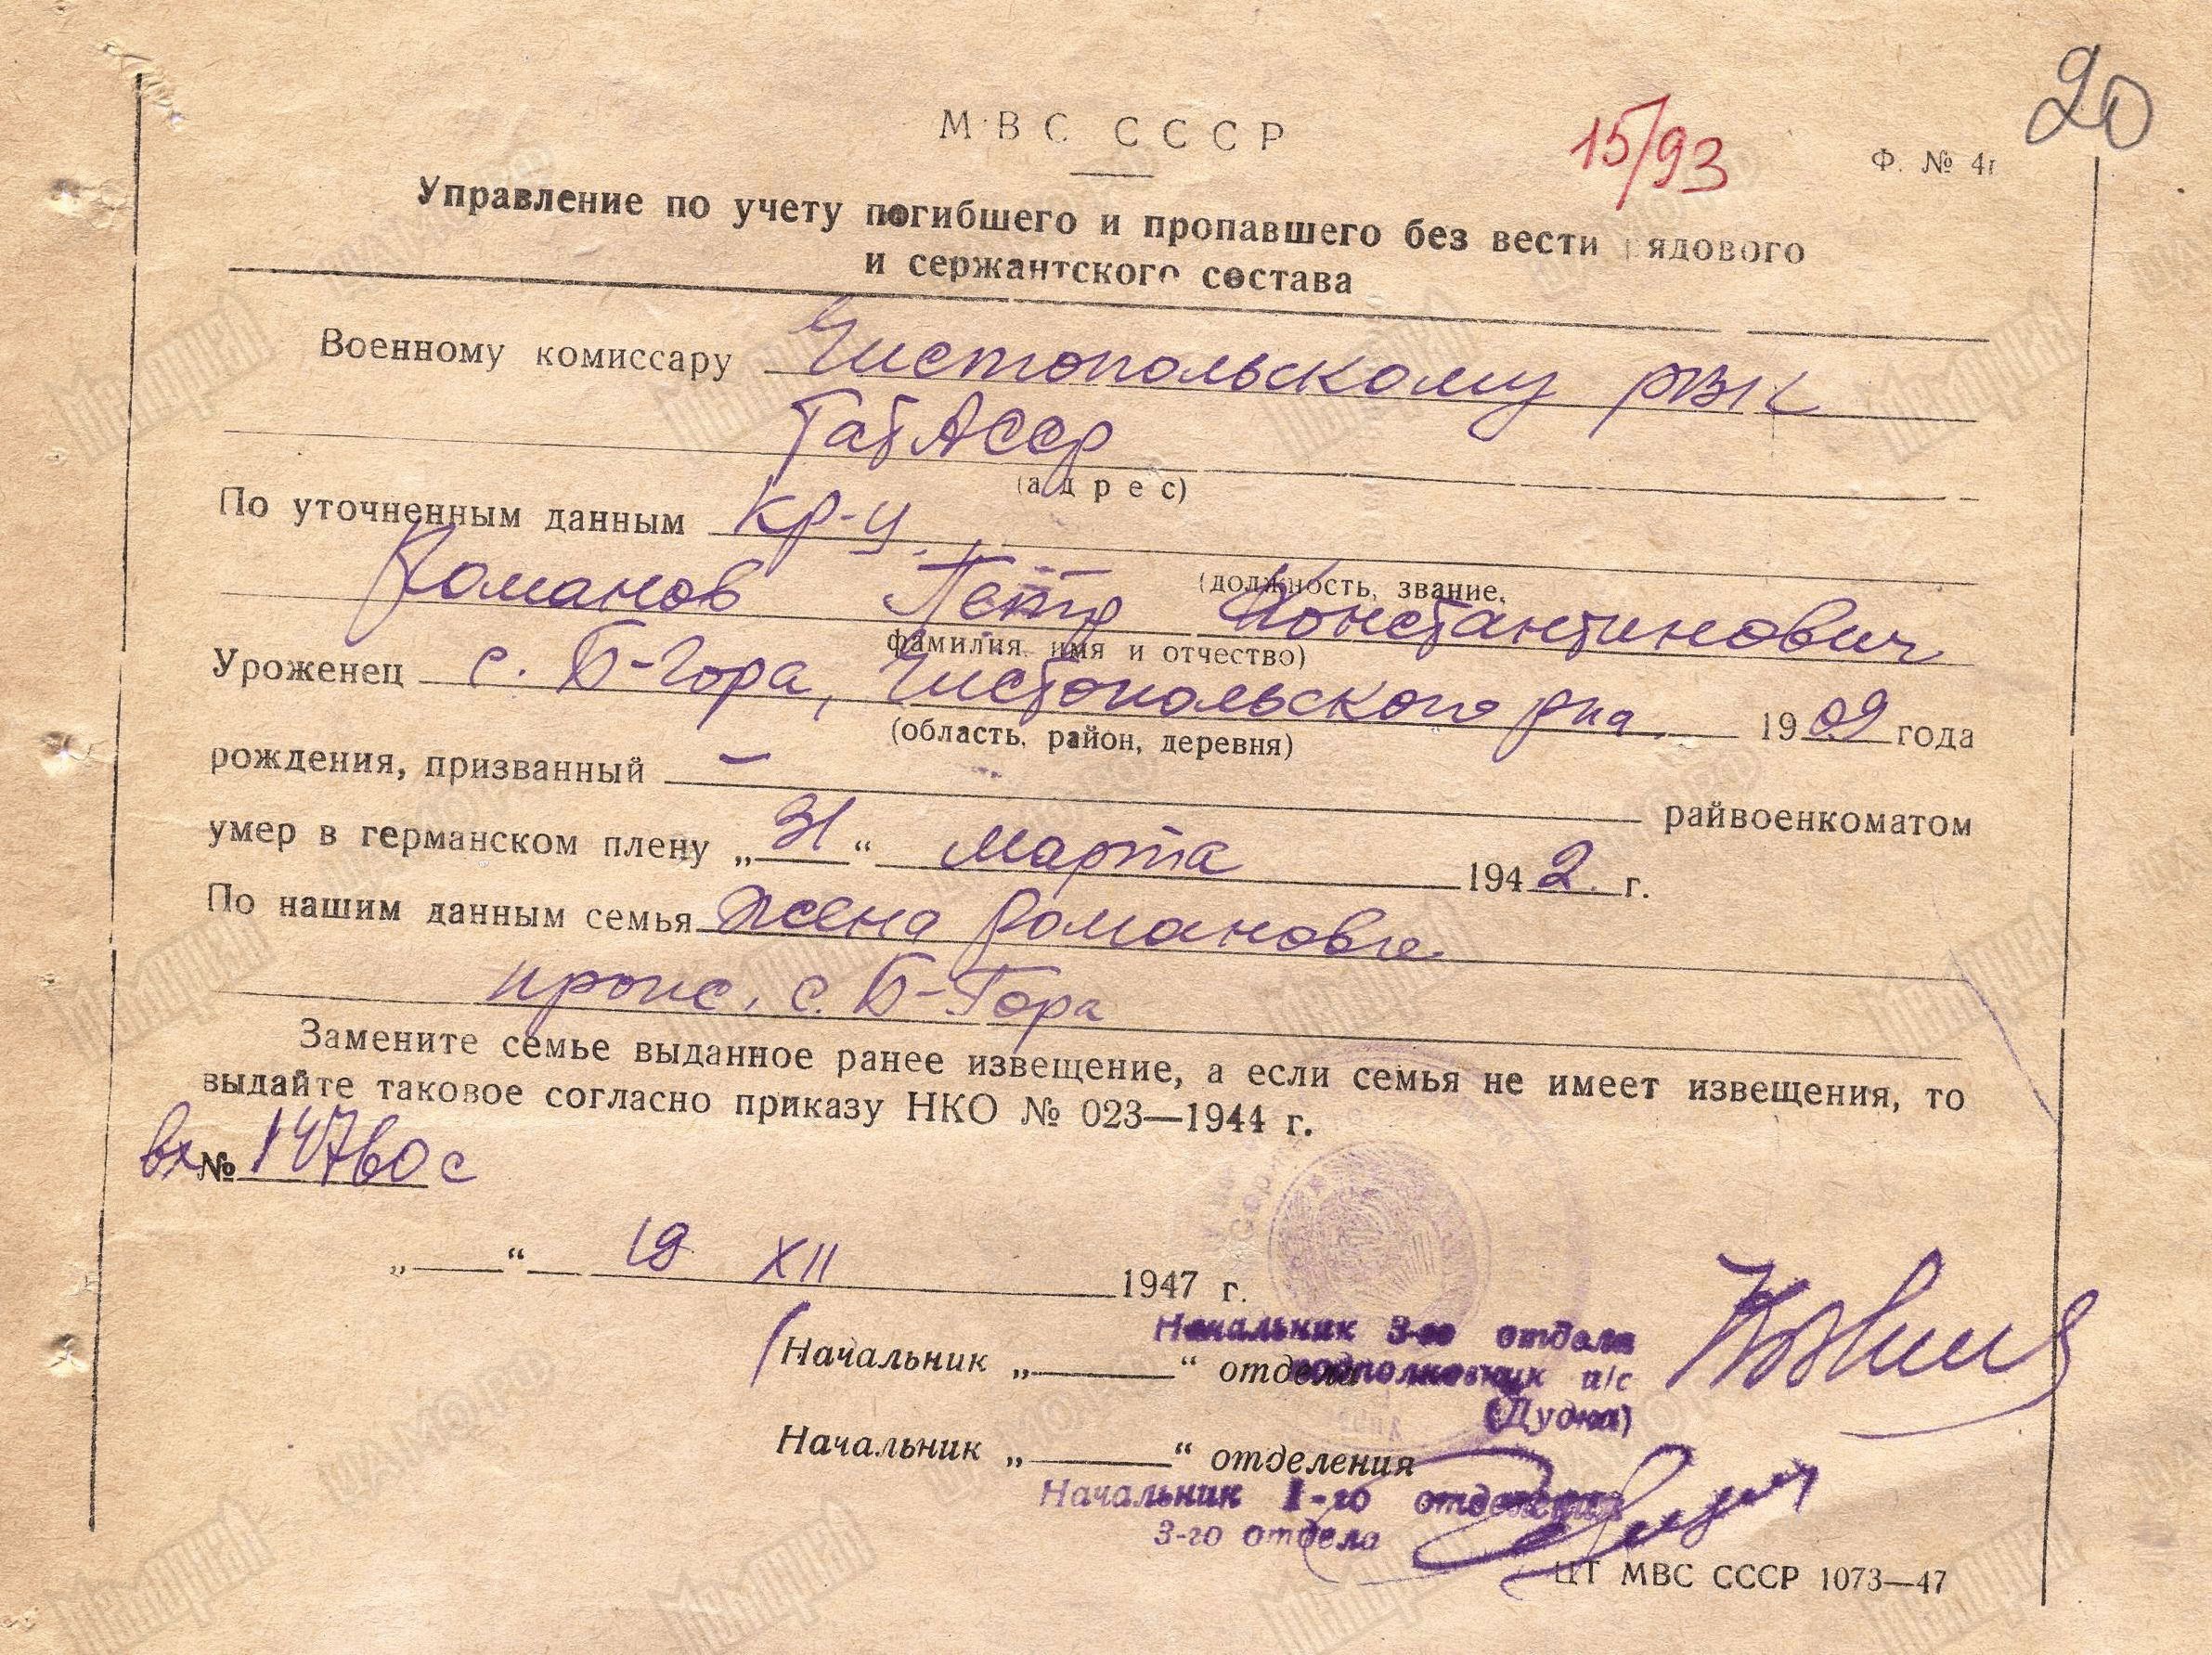 20
15/93
МВС СССР
Ф. № 4г
Управление по учету погибшего и пропавшего без вести рядового
и сержантского состава
Военному комиссару Чистопольскому РВК
ТатАССР
(адрес)
По уточненным данным кр-ц
(должность, звание,
Романов Петр Константинович
фамилия, имя и отчество)
Уроженец с. Б-Гора, Чистопольского р-на 1909 года
(область, район, деревня)
рождения, призванный — райвоенкоматом
умер в германском плену „31“ марта 1942 г.
По нашим данным семья жена Романова
прож. с. Б-Гора
Замените семье выданное ранее извещение, а если семья не имеет извещения, то
выдайте таковое согласно приказу НКО № 023—1944 г.
вх № 14760с
„ “ 19 XII 1947 г.
Начальник 3-го отдела
Начальник „ “ отдела
подполковник а/с
(Дудка)
Начальник „ “ отделения
Начальник 1-го отделения
3-го отдела
ЦТ МВС СССР 1073—47